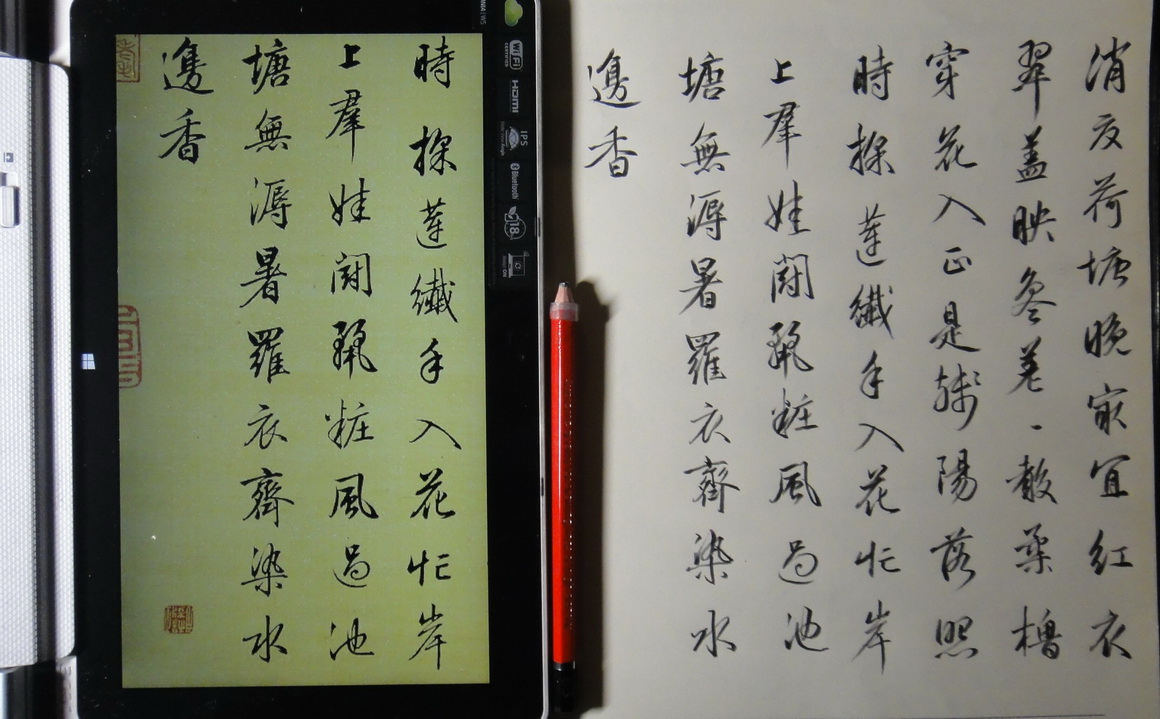 時採蓮纖手入花忙岸
上羣娃鬪粧風過池
塘無溽暑羅衣齊染水
邊香
WiFi
CERTIFIED
HDMI
IPS
Bluetooth
18
消夏荷塘晚最宜紅衣
翠蓋映參差一艘柔櫓
穿花入正是殘陽落照
時採蓮纖手入花忙岸
上羣娃鬪粧風過池
塘無溽暑羅衣齊染水
邊香